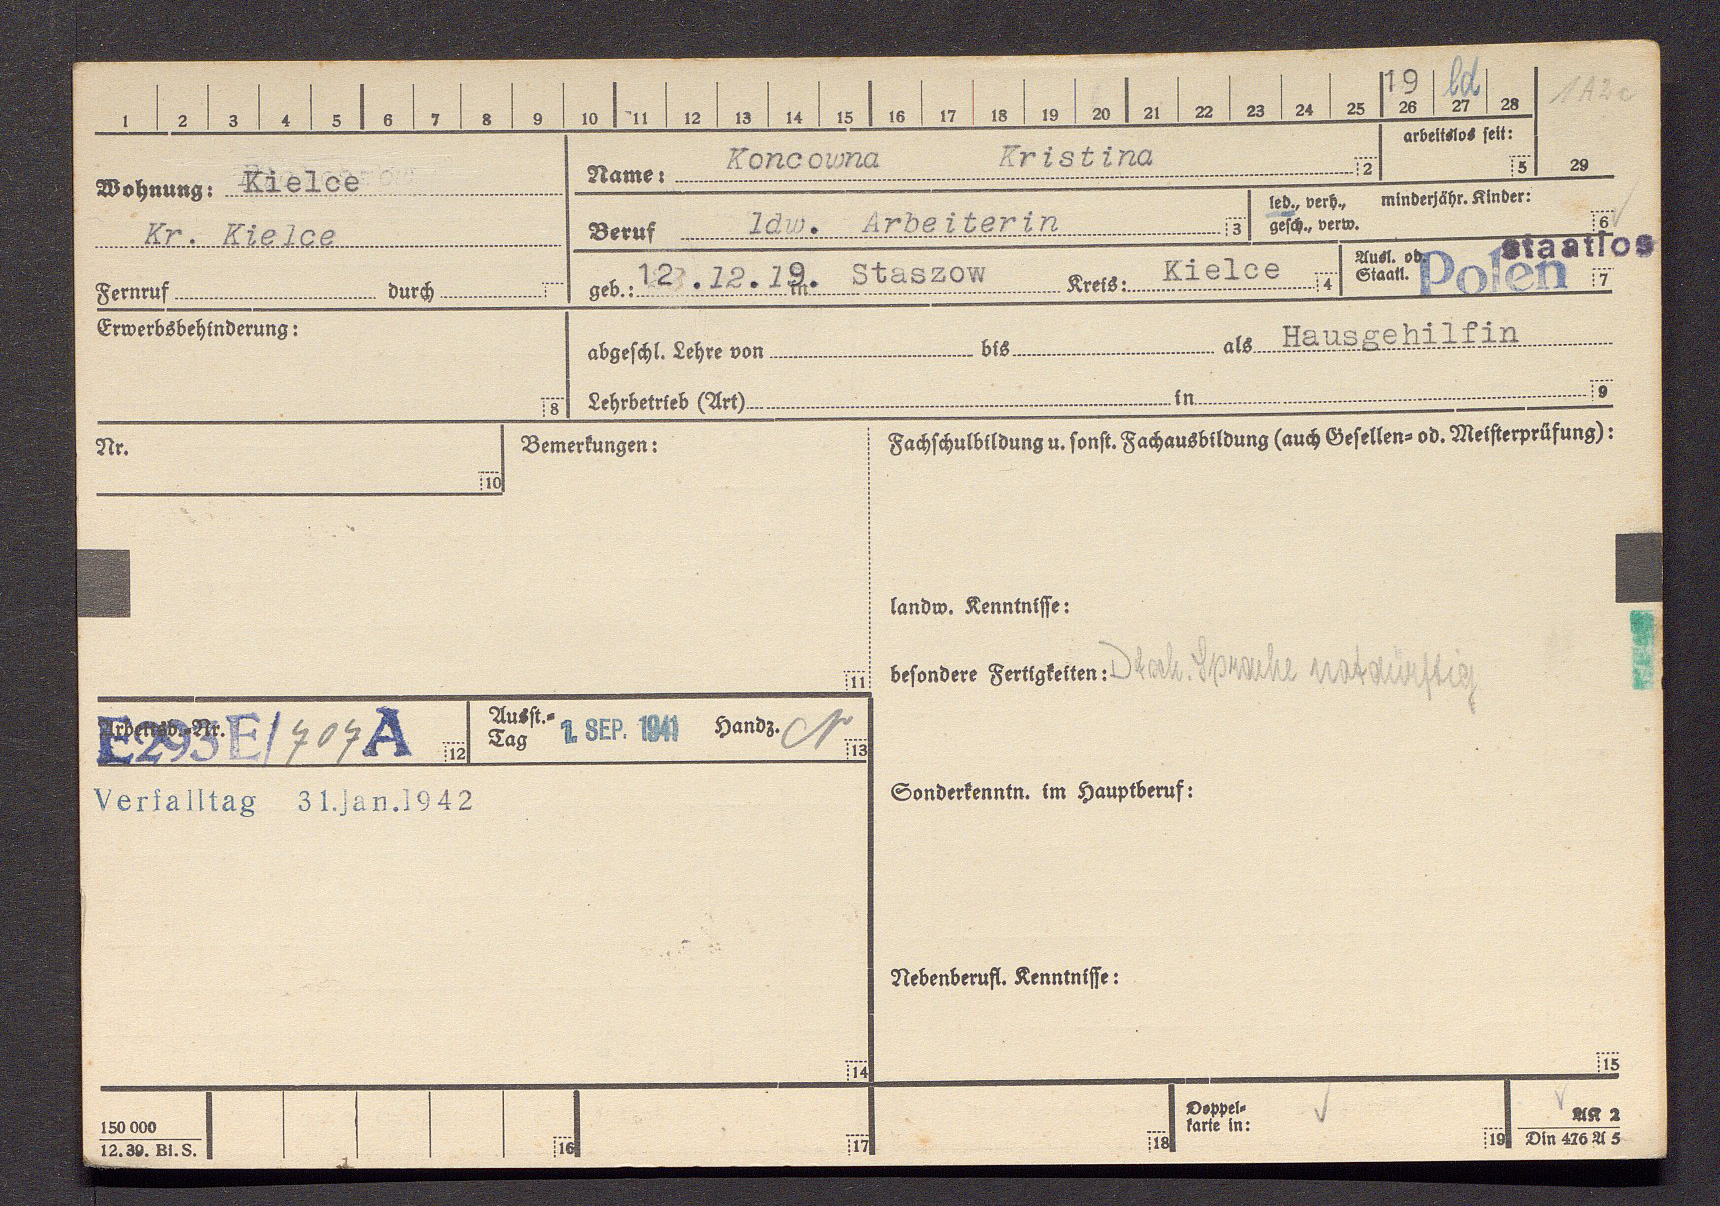 19 ld
1 2 3 4 5 6 7 8 9 10 11 12 13 14 15 16 17 18 19 20 21 22 23 24 25 26 27 28
1A2c
arbeitslos seit:
5
29
Wohnung: Kielce
Kr. Kielce
Fernruf durch
Name: Koncowna Kristina 2
Beruf ldw. Arbeiterin 3
led., verh., minderjähr. Kinder:
gesch., verw. 6
geb.: 12.12.19. in Staszow Kreis: Kielce 4
Ausl. od.
Staatl. Polen staatlos 7
Erwerbsbehinderung:
8
abgeschl. Lehre von bis als Hausgehilfin
Lehrbetrieb (Art) in 9
Nr.
10
Bemerkungen:
11
Fachschulbildung u. sonst. Fachausbildung (auch Gesellen- od. Meisterprüfung):
landw. Kenntnisse:
besondere Fertigkeiten: Dtsch. Sprache notdürftig
Sonderkenntn. im Hauptberuf:
Nebenberufl. Kenntnisse:
15
Arbeitsb.-Nr.
E293E/707A 12
Ausst.-
Tag 1. SEP. 1941 Handz. 13
Verfalltag 31.Jan.1942
14
150 000
12. 39. Bi. S.
16
17
18
Doppel-
karte in:
19
AK 2
Din 476 A 5